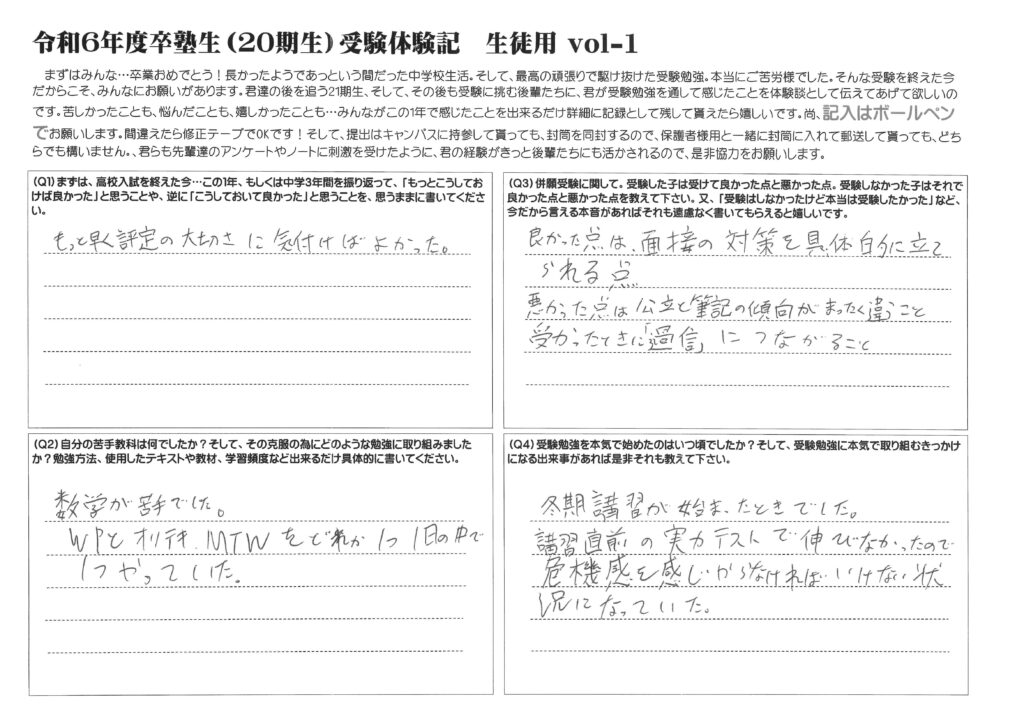 令和6年度卒塾生(20期生)受験体験記　生徒用 vol-1
まずはみんな…卒業おめでとう！長かったようであっという間だった中学校生活。そして、最高の頑張りで駆け抜けた受験勉強。本当にご苦労様でした。そんな受験を終えた今
だからこそ、みんなにお願いがあります。君達の後を追う21期生、そして、その後も受験に挑む後輩たちに、君が受験勉強を通して感じたことを体験談として伝えてあげて欲しいの
です。苦しかったことも、悩んだことも、嬉しかったことも…みんながこの1年で感じたことを出来るだけ詳細に記録として残して貰えたら嬉しいです。尚、記入はボールペン
でお願いします。間違えたら修正テープでOKです！そして、提出はキャンパスに持参して貰っても、封筒を同封するので、保護者様用と一緒に封筒に入れて郵送して貰っても、どち
らでも構いません。、君らも先輩達のアンケートやノートに刺激を受けたように、君の経験がきっと後輩たちにも活かされるので、是非協力をお願いします。
(Q1)まずは、高校入試を終えた今…この1年、もしくは中学3年間を振り返って、「もっとこうしてお
けば良かった」と思うことや、逆に「こうしておいて良かった」と思うことを、思うままに書いてくださ
い。
もっと早く評定の大切さに気付けばよかった。
(Q3)併願受験に関して。受験した子は受けて良かった点と悪かった点。受験しなかった子はそれで
良かった点と悪かった点を教えて下さい。又、「受験はしなかったけど本当は受験したかった」など、
今だから言える本音があればそれも遠慮なく書いてもらえると嬉しいです。
良かった点は、面接の対策を具体的に立て
られる点
悪かった点は公立と筆記の傾向がまったく違うこと
受かったときに「過信」につながること
(Q2)自分の苦手教科は何でしたか？そして、その克服の為にどのような勉強に取り組みました
か？勉強方法、使用したテキストや教材、学習頻度など出来るだけ具体的に書いてください。
数学が苦手でした。
WPとオリテキ、MTWをどれか1つ1日の中で
1つやっていた。
(Q4)受験勉強を本気で始めたのはいつ頃でしたか？そして、受験勉強に本気で取り組むきっかけ
になる出来事があれば是非それも教えて下さい。
冬期講習が始まったときでした。
講習直前の実力テストで伸びなかったので
危機感を感じからなければいけない状
況になっていた。